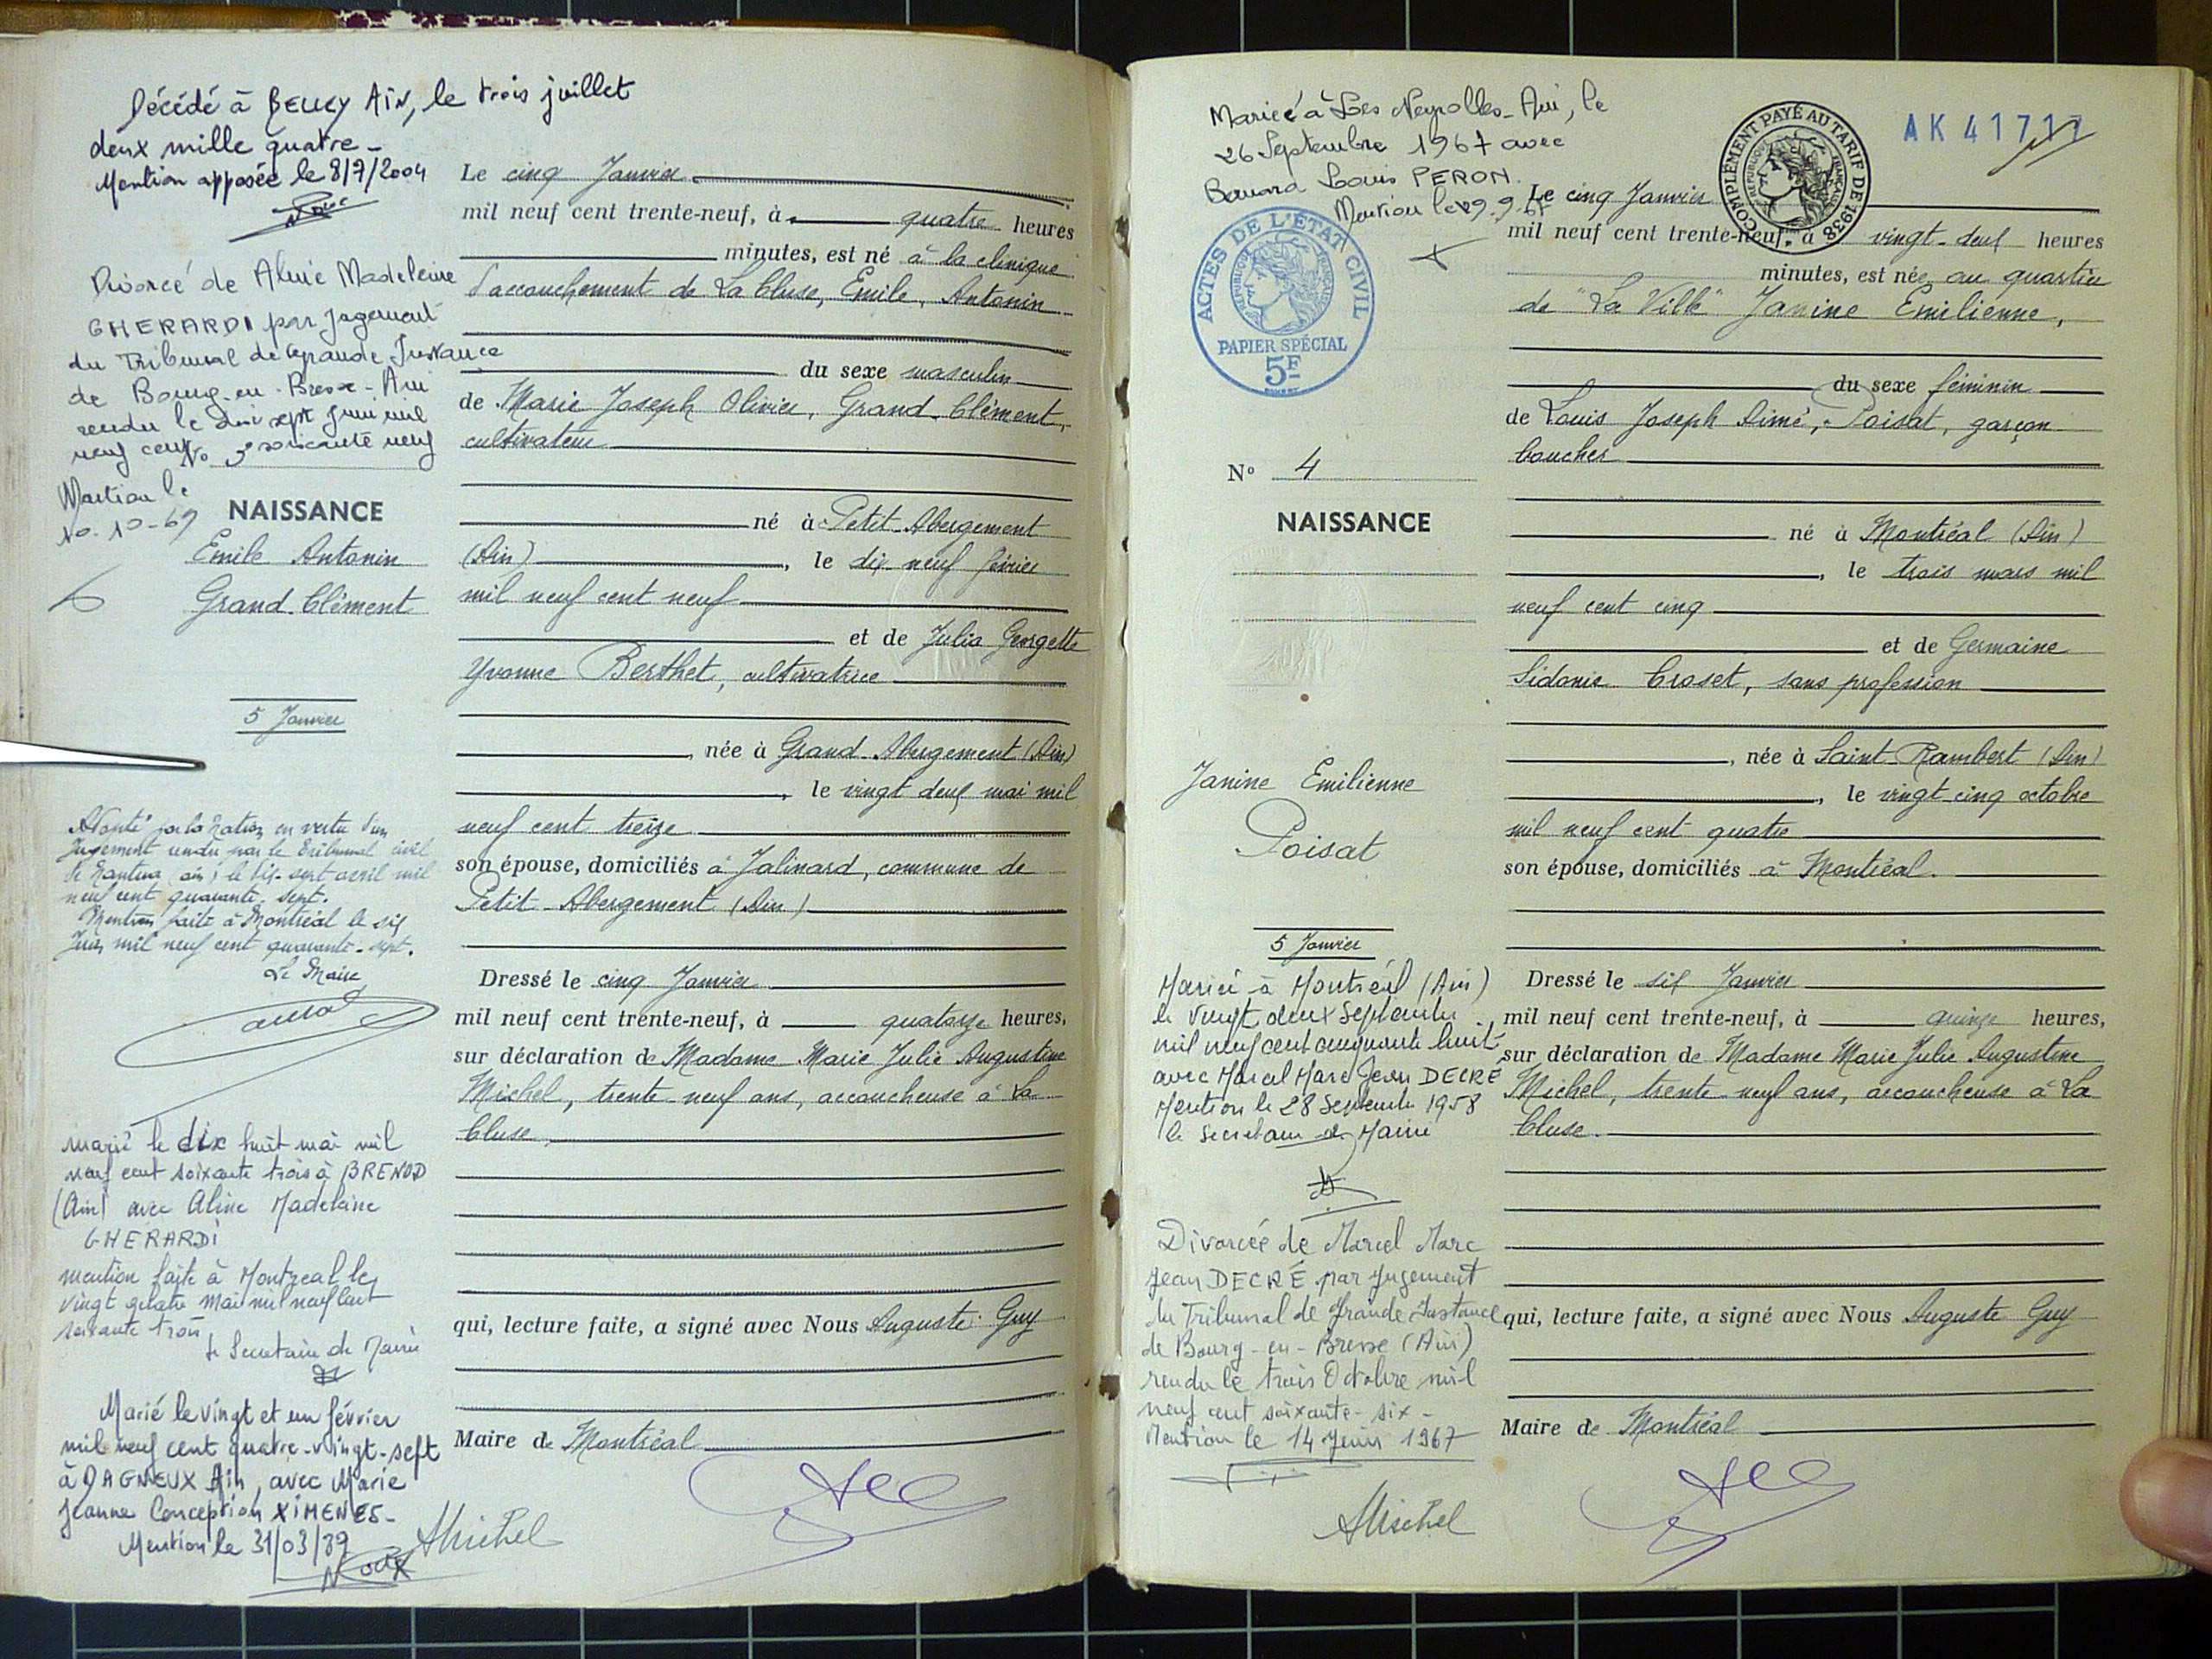 Décédé à BELLEY AIN, le trois juillet
deux mille quatre -
Mention apposée le 8/7/2004
Divorcé de Aline Madeleine
GHERARDI par jugement
du Tribunal de Grande Instance
de Bourg-en-Bresse - Ain
rendu le dix sept juin mil
neuf cent soixante neuf
No 3
Mention le
10-10-69
NAISSANCE
Emile Antonin
Grand Clément
5 Janvier
Adopté par la Nation en vertu d'un
Jugement rendu par le Tribunal civil
de Nantua (Ain) le dix-sept avril mil
neuf cent quarante-sept.
Mention faite à Montréal le six
Juin mil neuf cent quarante-sept.
Le Maire
marié le dix huit mai mil
neuf cent soixante trois à BRENOD
(Ain) avec Aline Madeleine
GHERARDI
mention faite à Montreal le
vingt quatre Mai mil neuf cent
soixante trois
le Secretaire de Mairie
Marié le vingt et un février
mil neuf cent quatre-vingt-sept
à DAGNEUX Ain, avec Marie
Jeanne Conception XIMENES-
Mention le 31/03/87
Le cinq Janvier
mil neuf cent trente-neuf, à quatre heures
minutes, est né à la clinique
d'accouchement de La Cluse, Emile, Antonin
du sexe masculin
de Marie Joseph Olivier, Grand-Clément,
cultivateur
né à Petit-Abergement
(Ain), le dix-neuf février
mil neuf cent neuf
et de Julia Georgette
Yvonne Berthet, cultivatrice
, née à Grand-Abergement (Ain)
, le vingt deux mai mil
neuf cent treize
son épouse, domiciliés à Jalinard, commune de
Petit-Abergement (Ain)
Dressé le cinq Janvier
mil neuf cent trente-neuf, à quatorze heures,
sur déclaration de Madame Marie Julie Augustine
Michel, trente neuf ans, accoucheuse à La
Cluse
qui, lecture faite, a signé avec Nous Auguste Guy
Maire de Montréal
AMichel
Mariée à Les Neyrolles-Ain, le
26 Septembre 1967 avec
Louis PERON.
Mention le 29.9.67
ACTES DE L'ÉTAT CIVIL
RÉPUBLIQUE FRANÇAISE
PAPIER SPÉCIAL
5F
COMPLÉMENT PAYÉ AU TARIF DE 1938
RÉPUBLIQUE FRANÇAISE
AK 41717
No 4
NAISSANCE
Janine Emilienne
Poisat
5 Janvier
Mariée à Montréal (Ain)
le vingt deux Septembre
mil neuf cent cinquante huit
avec Marcel Marc Jean DECRÉ
Mention le 28 Septembre 1958
le Secretaire de Mairie
Divorcée de Marcel Marc
Jean DECRÉ par jugement
du Tribunal de Grande Instance
de Bourg-en-Bresse (Ain)
rendu le trois Octobre mil
neuf cent soixante-six -
Mention le 14 Juin 1967
Le cinq Janvier
mil neuf cent trente-neuf, à vingt-deux heures
minutes, est née au quartier
de "La Ville" Janine Emilienne,
du sexe féminin
de Louis Joseph Aimé, Poisat, garçon
boucher
né à Montréal (Ain)
, le trois mars mil
neuf cent cinq
et de Germaine
Sidonie Croset, sans profession
, née à Saint Rambert (Ain)
, le vingt cinq octobre
mil neuf cent quatre
son épouse, domiciliés à Montréal.
Dressé le six Janvier
mil neuf cent trente-neuf, à quinze heures,
sur déclaration de Madame Marie Julie Augustine
Michel, trente neuf ans, accoucheuse à La
Cluse.
qui, lecture faite, a signé avec Nous Auguste Guy
Maire de Montréal
AMichel